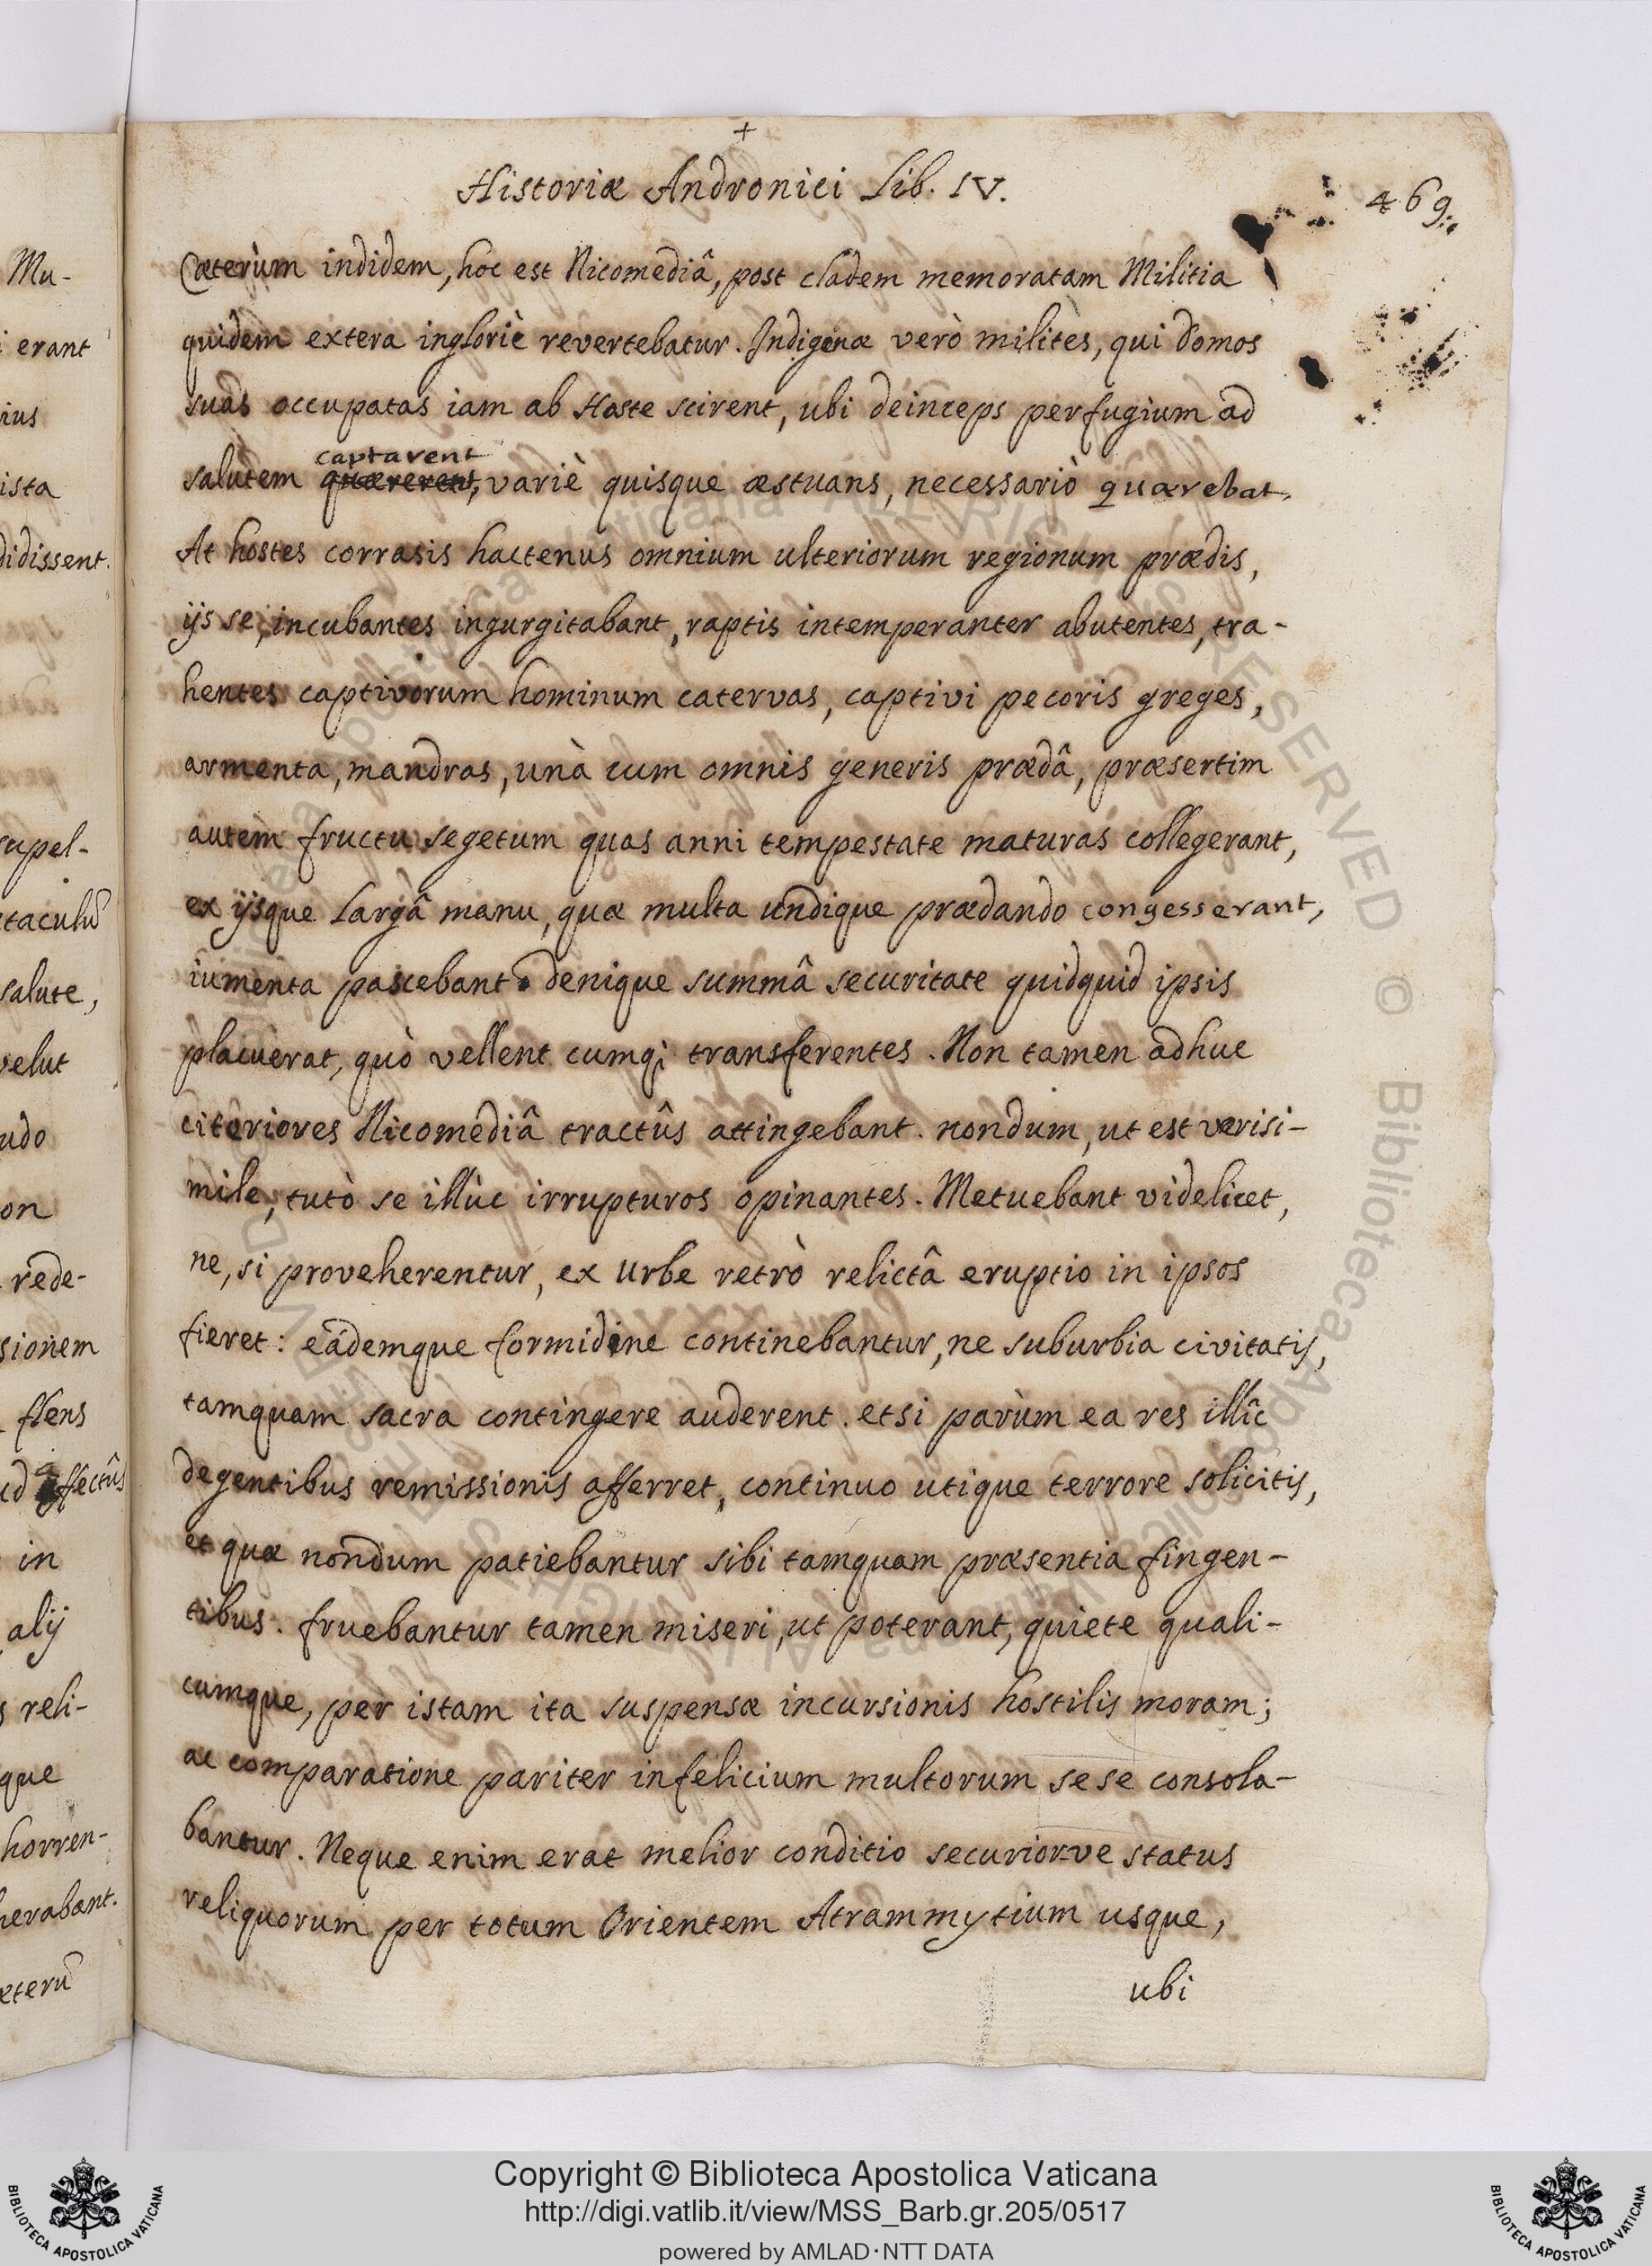 +
Historiæ Andronici Lib. IV.
469.
Cæterùm indidem, hoc est Nicomediâ, post cladem memoratam Militia
quidem extera ingloriè revertebatur. Indigenæ verò milites, qui domos
suas occupatas iam ab Hoste scirent, ubi deinceps perfugium ad
captarent
salutem quærerent, variè quisque æstuans, necessariò quærebat.
At hostes corrasis hactenus omnium ulteriorum regionum prædis,
ijs se, incubantes ingurgitabant, raptis intemperanter abutentes, tra-
hentes captivorum hominum catervas, captivi pecoris greges,
armenta, mandras, unà cum omnis generis prædâ, præsertim
autem fructu segetum quas anni tempestate maturas collegerant,
ex ijsque largâ manu, quæ multa undique prædando congesserant,
iumenta pascebant. denique summâ securitate quidquid ipsis
placuerat, quò vellent cumq; transferentes. Non tamen adhuc
citeriores Nicomediâ tractûs attingebant. nondum, ut est verisi-
mile, tutò se illùc irrupturos opinantes. Metuebant videlicet,
ne, si proveherentur, ex Urbe retrò relictâ eruptio in ipsos
fieret: eâdemque formidine continebantur, ne suburbia civitatis,
tamquam sacra contingere auderent. etsi parùm ea res illîc
degentibus remissionis afferret, continuo utique terrore solicitis,
et quæ nondum patiebantur sibi tamquam præsentia fingen-
tibus. fruebantur tamen miseri, ut poterant, quiete quali-
cumque, per istam ita suspensæ incursionis hostilis moram;
ac comparatione pariter infelicium multorum sese consola-
bantur. Neque enim erat melior conditio securior-ve status
reliquorum per totum Orientem Atrammytium usque,
ubi
Mu-
erant
ius
ista
didissent.
supel-
taculū
salute,
velut
udo
on
rede-
sionem
flens
affectûs
in
alij
reli-
que
horren-
herabant.
æterū
Copyright © Biblioteca Apostolica Vaticana
http://digi.vatlib.it/view/MSS_Barb.gr.205/0517
powered by AMLAD·NTT DATA
BIBLIOTECA APOSTOLICA VATICANA
BIBLIOTECA APOSTOLICA VATICANA